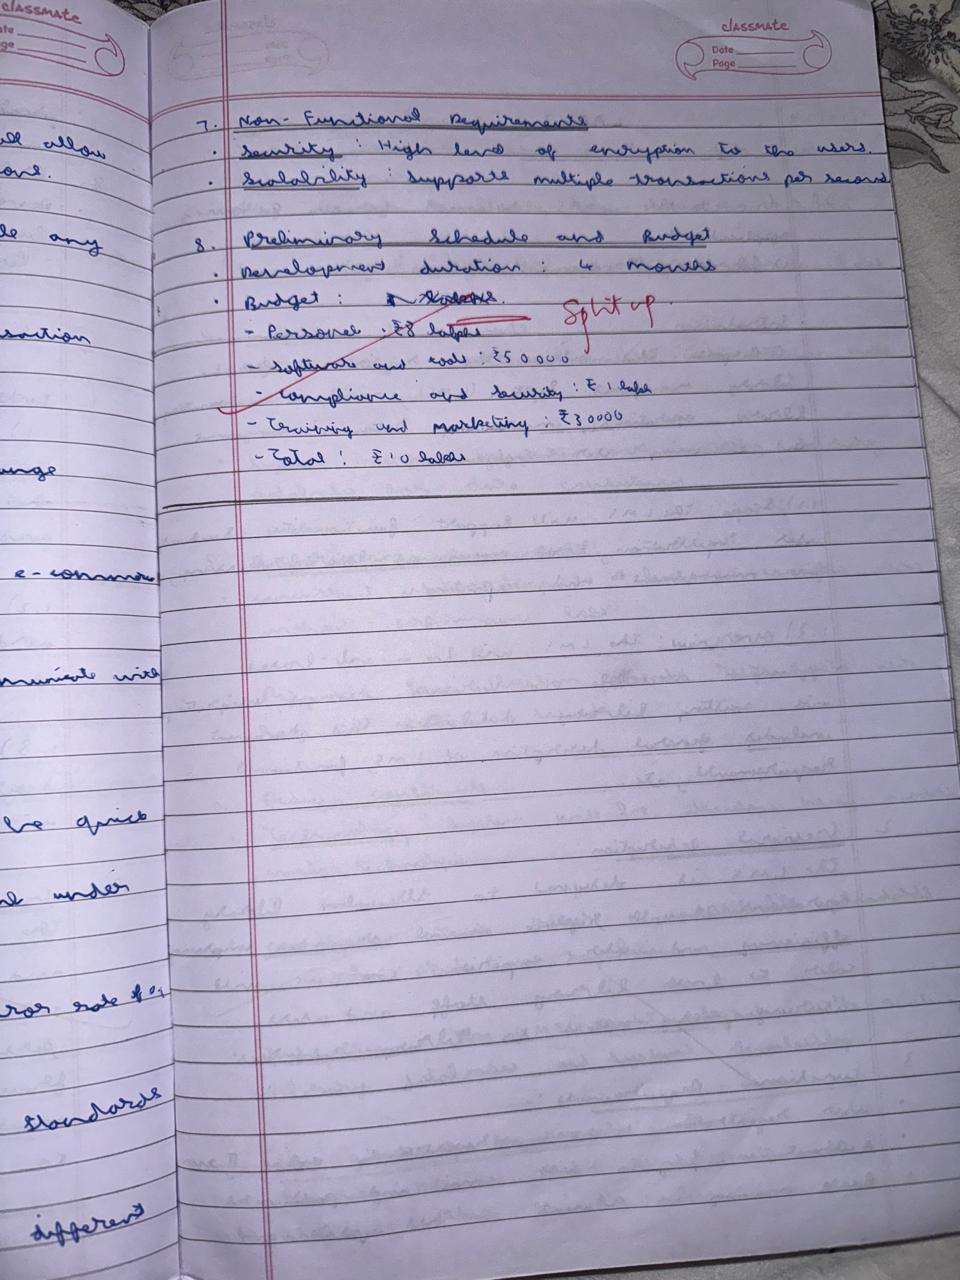 classmate
ate
ge
classmate
Date
Page
all allow
ons.
le any
saction
ange
e-commerce
municate with
be quick
nd under
ror rate of 0.1
standards
different
7. Non-Functional Requirements
. Security : High level of encryption to the users.
. Scalability : supports multiple transactions per second
8. Preliminary Schedule and Budget
. Development duration : 4 months
. Budget :
Split up
- Personel : ₹8 lakhs
- Software and tools : ₹50000
- Compliance and security : ₹1 lakh
- Training and marketing : ₹30000
- Total : ₹10 lakhs